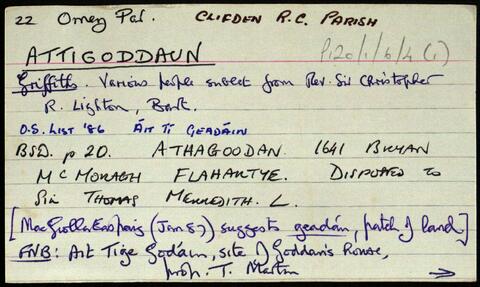 22 Omey Par. CLIFDEN R.C. PARISH
P120/1/6/4 (1)
ATTIGODDAUN
Griffiths. Various people sublet from Rev. Sir Christopher
R. Lighton, Bart.
O.S. LIST '86 ÁIT TÍ GEADÁIN
BSD. p 20. ATHAGOODAN. 1641 BRYAN
MC MORAGH FLAHARTYE. DISPOSED TO
SIR THOMAS MERREDITH. L.
[MacGiolla Easpaig (Jan 87) suggests geadán, patch of land]
FNB: Áit Tighe Godáin, site of Goddan's House,
prop. T. Martin
→